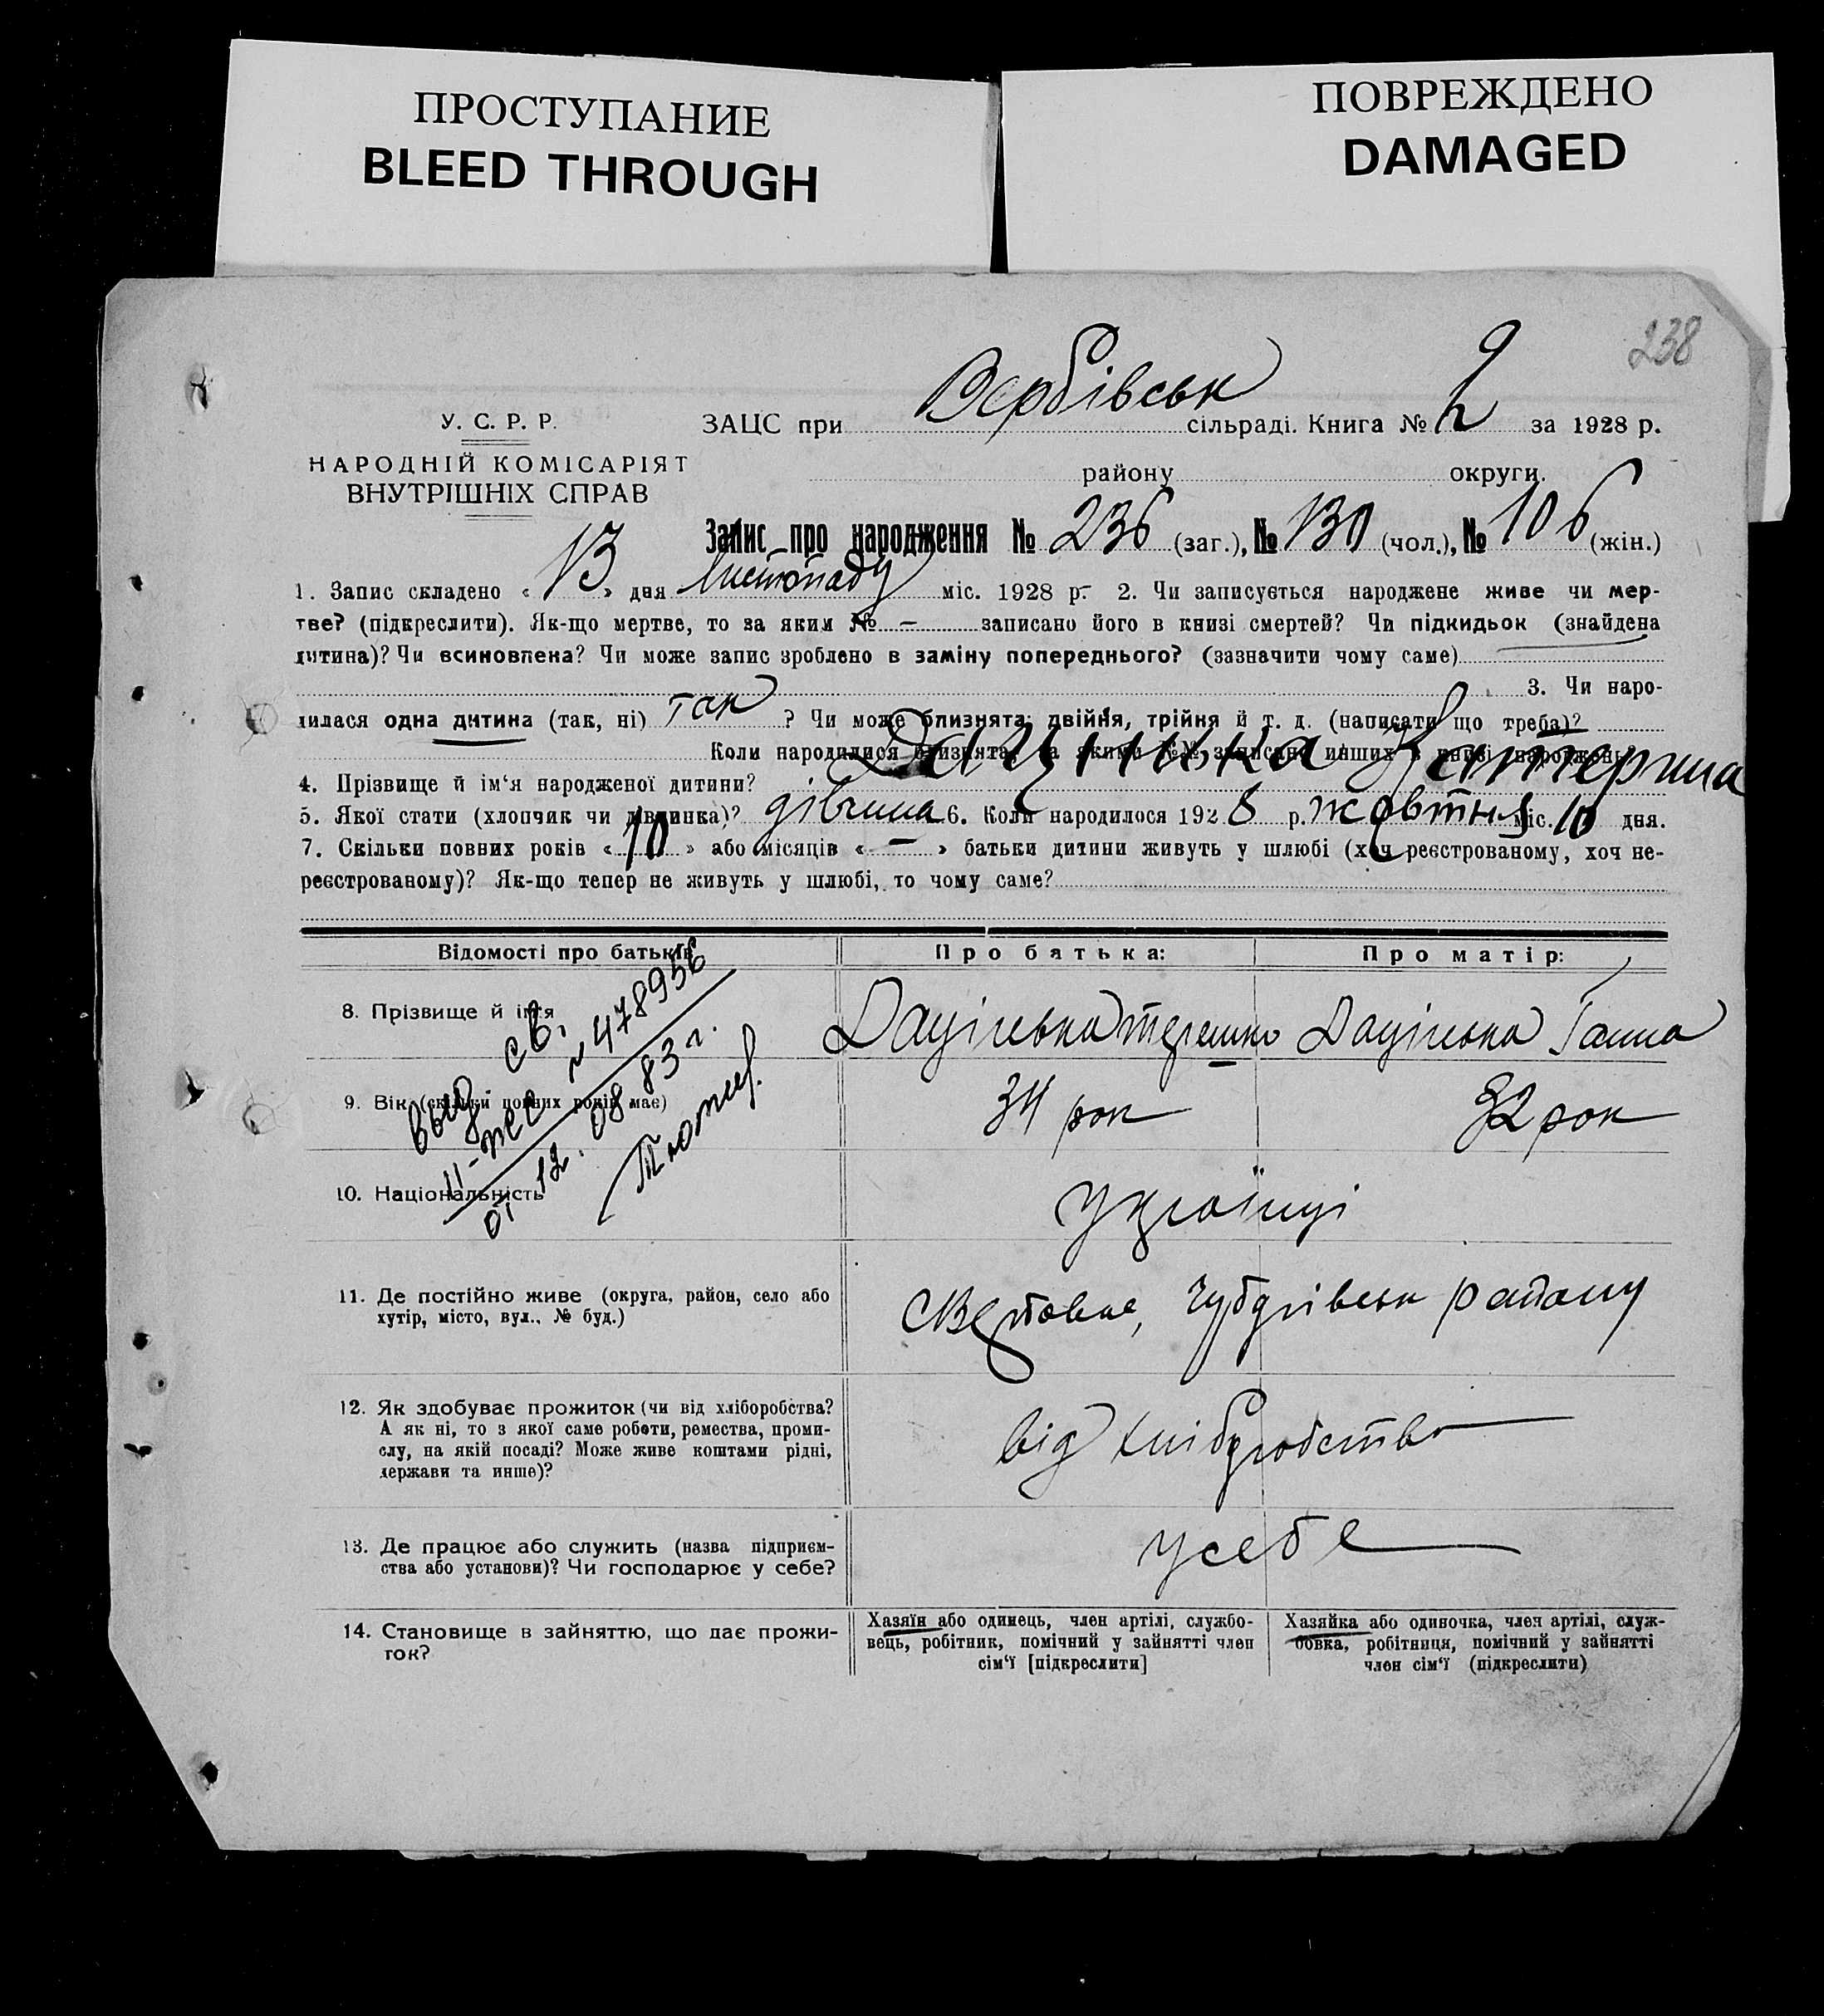 ПРОСТУПАНИЕ
BLEED THROUGH
ПОВРЕЖДЕНО
DAMAGED
238
У. С. Р. Р.
НАРОДНІЙ КОМІСАРІЯТ
ВНУТРІШНІХ СПРАВ
ЗАЦС при Вербівськ сільраді. Книга № 2 за 1928 р.
району округи.
Запис про народження № 236 (заг.), № 130 (чол.), № 106 (жін.)
1. Запис складено « 13 » дня листопаду міс. 1928 р. 2. Чи записується народжене живе чи мер-
тве? (підкреслити). Як-що мертве, то за яким № — записано його в книзі смертей? Чи підкидьок (знайдена
дитина)? Чи всиновлена? Чи може запис зроблено в заміну попереднього? (зазначити чому саме)
3. Чи наро-
дилася одна дитина (так, ні) так ? Чи може близнята: двійня, трійня й т. д. (написати що треба)?
Коли народилися близнята, за якими №№ записано инших в книзі народжень
4. Прізвище й ім‘я народженої дитини? Дацінька Катерина
5. Якої статі (хлопчик чи дівчинка)? дівчина 6. Коли народилося 1928 р. жовтня міс. 10 дня.
7. Скільки повних років « 10 » або місяців « — » батьки дитини живуть у шлюбі (хоч реєстрованому, хоч не-
реєстрованому)? Як-що тепер не живуть у шлюбі, то чому саме?
Відомості про батьків
Про батька:
Про матір:
8. Прізвище й ім‘я
Дацінька
Дацінька Ганна
9. Вік (скільки повних років має)
34 рок
32 рок
10. Національність
Українці
выд. св.
№ 478956
от 12.08 83 г.
11. Де постійно живе (округа, район, село або
хутір, місто, вул., № буд.)
району
12. Як здобуває прожиток (чи від хліборобства?
А як ні, то з якої саме роботи, ремества, проми-
слу, на якій посаді? Може живе коштами рідні,
держави та инше)?
від хліборобства
13. Де працює або служить (назва підприєм-
ства або установи)? Чи господарює у себе?
усебе
14. Становище в зайняттю, що дає прожи-
ток?
Хазяїн або одинець, член артілі, службо-
вець, робітник, помічний у зайнятті член
сім‘ї [підкреслити]
Хазяйка або одиночка, член артілі, служ-
бовка, робітниця, помічний у зайнятті
член сім‘ї (підкреслити)